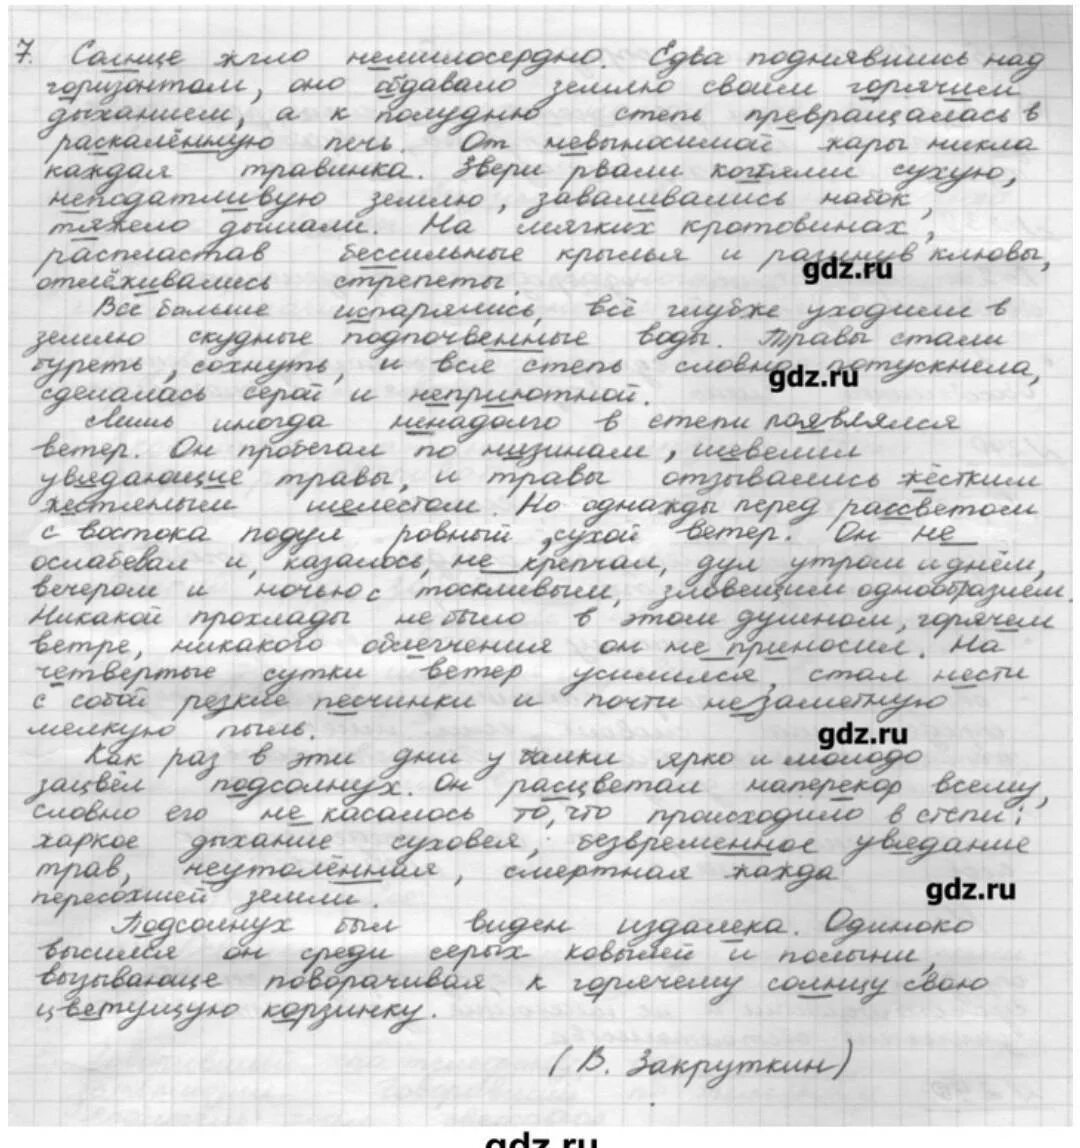 7. Солнце жгло немилосердно. Едва поднявшись над
горизонтом, оно обдавало землю своим горячим
дыханием, а к полудню степь превращалась в
раскалённую печь. От невыносимой жары никла
каждая травинка. Звери рвали когтями сухую,
неподатливую землю, заваливались набок,
тяжело дышали. На мягких кротовинах,
распластав бессильные крылья и разинув клювы,
отлёживались стрепеты.
Всё больше испарялись, всё глубже уходили в
землю скудные подпочвенные воды. Травы стали
буреть, сохнуть, и вся степь словно потускнела,
сделалась серой и неприютной.
Лишь иногда ненадолго в степи появлялся
ветер. Он пробегал по низинам, шевелил
увядающие травы, и травы отзывались жёстким
жестяным шелестом. Но однажды перед рассветом
с востока подул ровный, сухой ветер. Он не
ослабевал и, казалось, не крепчал, дул утром и днём,
вечером и ночью с тоскливым, зловещим однообразием.
Никакой прохлады не было в этом душном, горячем
ветре, никакого облегчения он не приносил. На
четвертые сутки ветер усилился, стал нести
с собой резкие песчинки и почти незаметную
мелкую пыль.
Как раз в эти дни у балки ярко и молодо
зацвёл подсолнух. Он расцветал наперекор всему,
словно его не касалось то, что происходило в степи:
жаркое дыхание суховея, безвременное увядание
трав, неутолённая, смертная жажда
пересохшей земли.
Подсолнух был виден издалека. Одиноко
высился он среди серых ковылей и полыни,
вызывающе поворачивая к горячему солнцу свою
цветущую корзинку.
(В. Закруткин)
gdz.ru
gdz.ru
gdz.ru
gdz.ru
gdz.ru